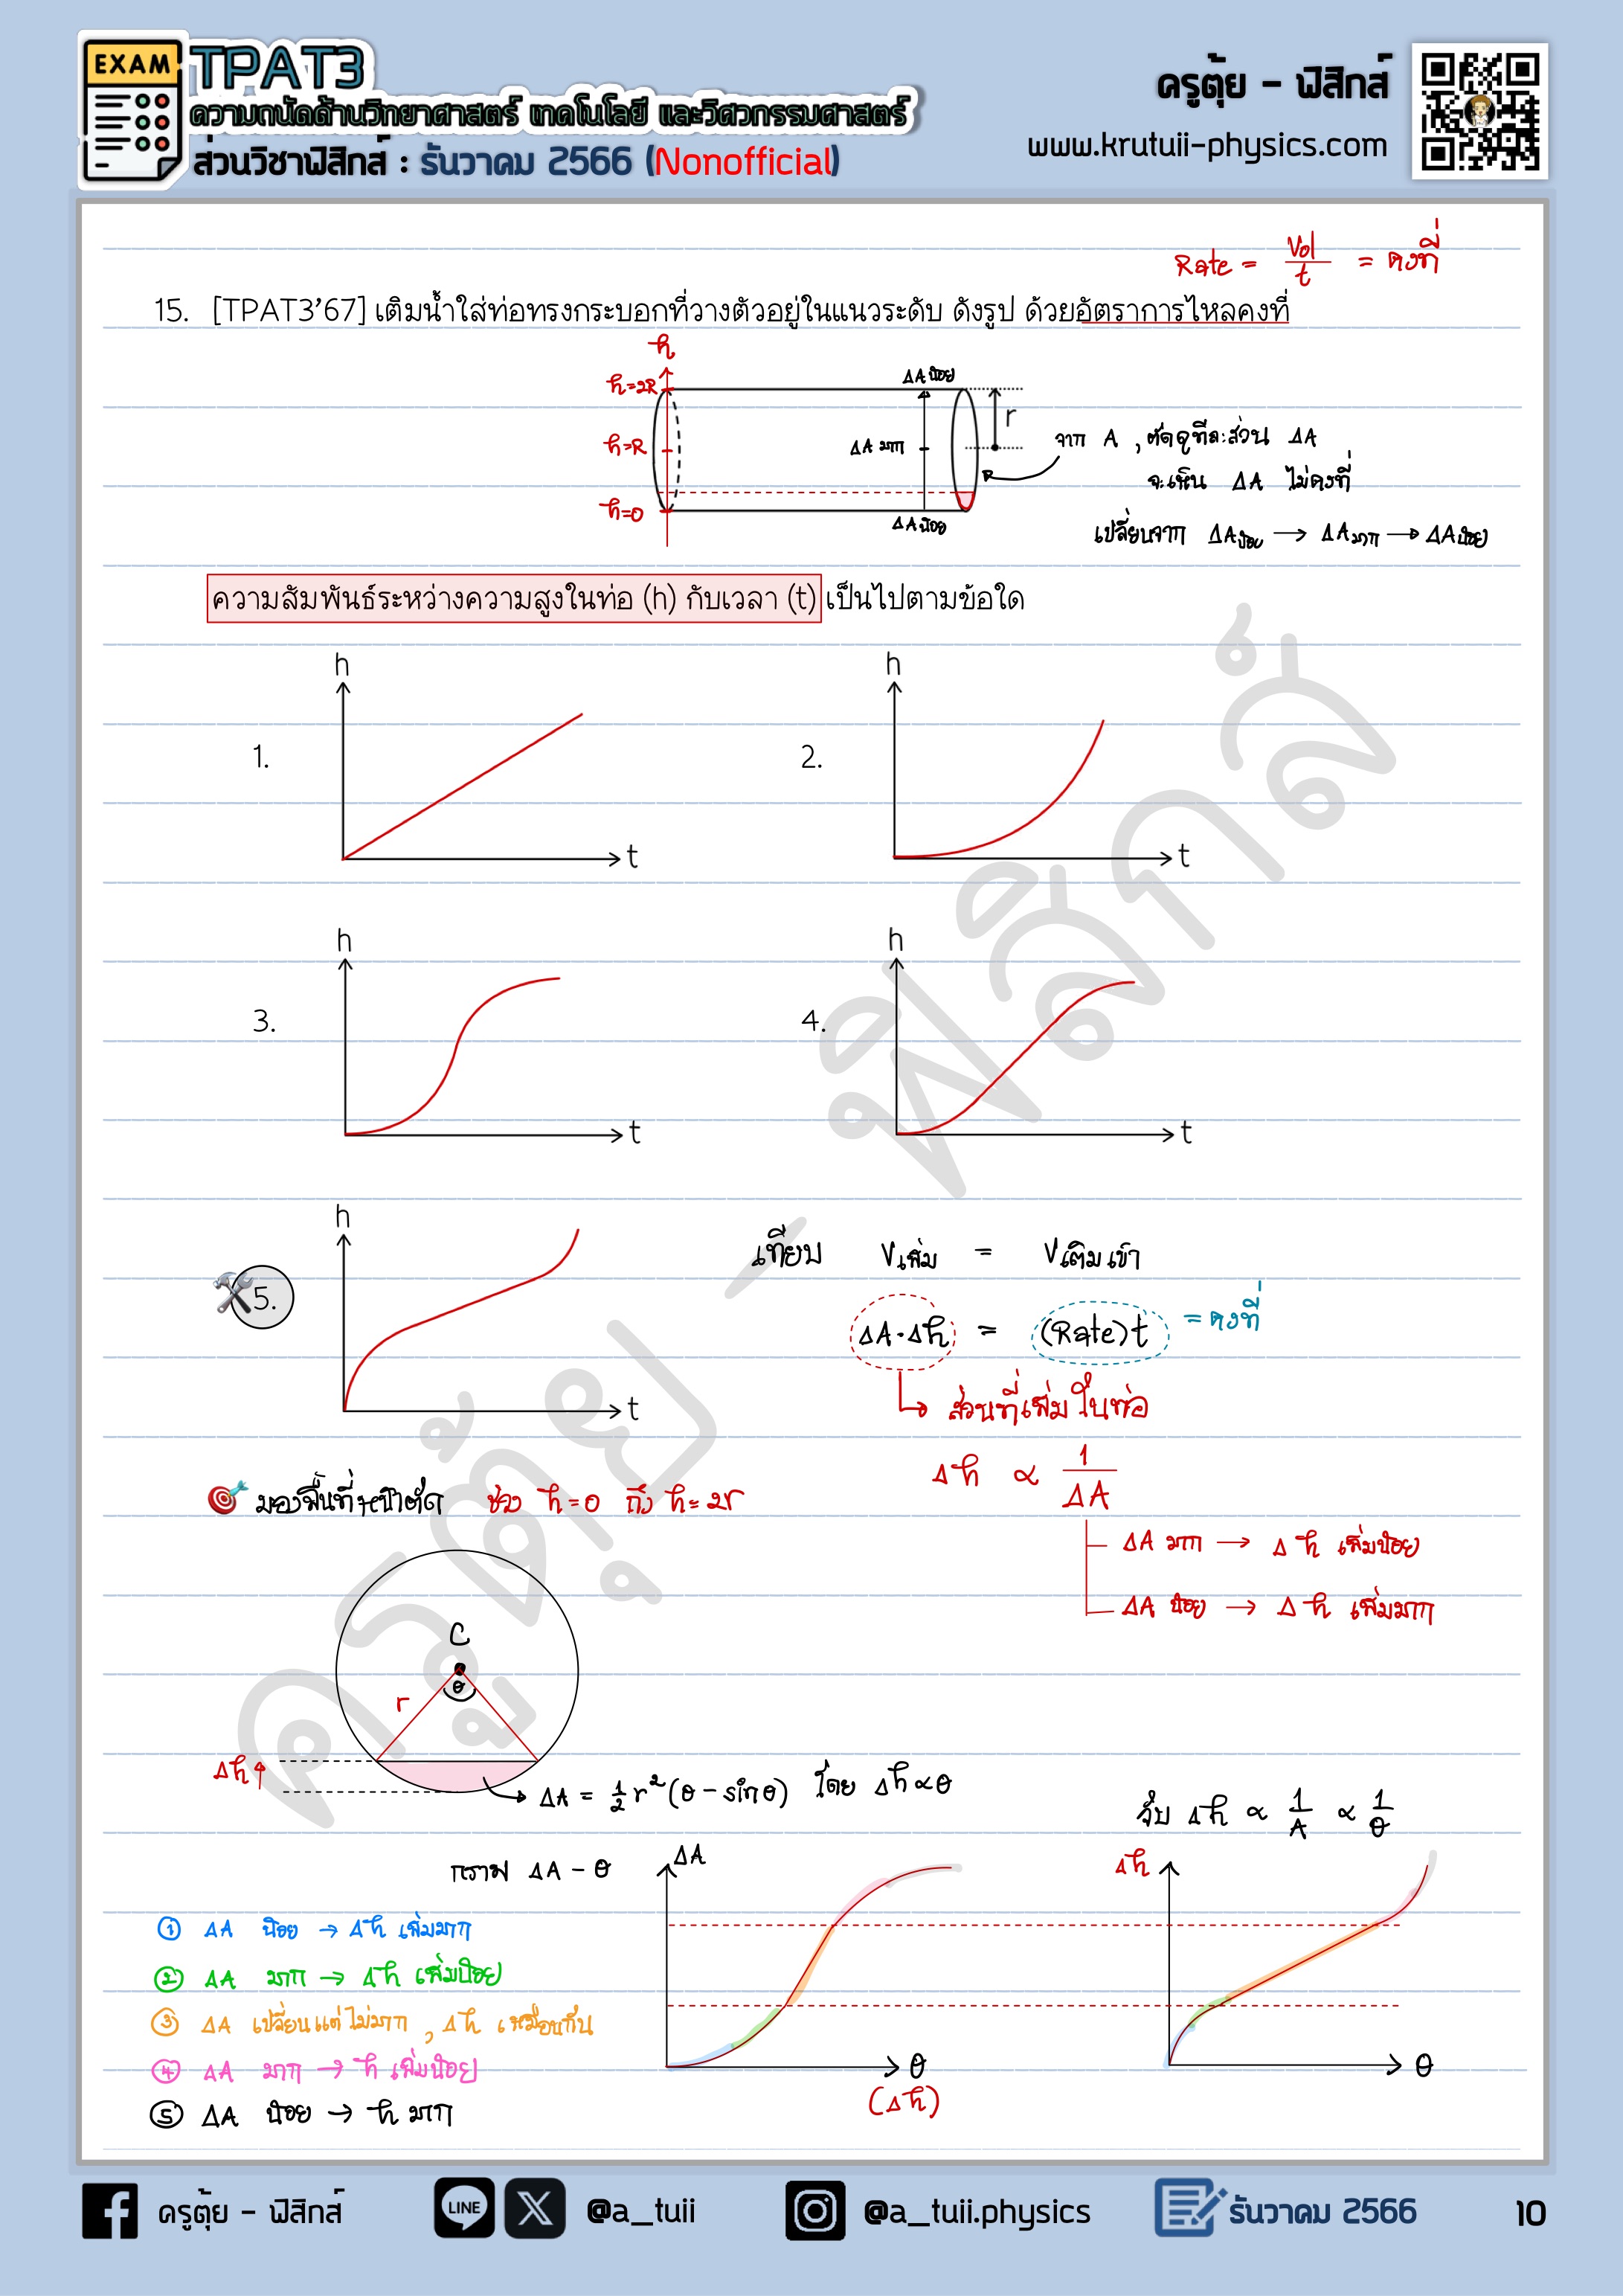 EXAM
TPAT3
ความถนัดด้านวิทยาศาสตร์ เทคโนโลยี และวิศวกรรมศาสตร์
ส่วนวิชาฟิสิกส์ : ธันวาคม 2566 (Nonofficial)
ครูตุ้ย - ฟิสิกส์
www.krutuii-physics.com
Rate = Vol/t = คงที่
15. [TPAT3'67] เติมน้ำใส่ท่อทรงกระบอกที่วางตัวอยู่ในแนวระดับ ดังรูป ด้วยอัตราการไหลคงที่
h
h=2R
h=R
h=0
ΔA น้อย
ΔA มาก
ΔA น้อย
r
จาก A , ตัดดูทีละส่วน ΔA
จะเห็น ΔA ไม่คงที่
เปลี่ยนจาก ΔAน้อย → ΔAมาก → ΔAน้อย
ความสัมพันธ์ระหว่างความสูงในท่อ (h) กับเวลา (t) เป็นไปตามข้อใด
1. h t
2. h t
3. h t
4. h t
5. h t
เทียบ Vเพิ่ม = Vเติมเข้า
ΔA·Δh = (Rate)t = คงที่
ส่วนที่เพิ่มในท่อ
Δh ∝ 1/ΔA
ΔA มาก → Δh เพิ่มน้อย
ΔA น้อย → Δh เพิ่มมาก
มองพื้นที่หน้าตัด ช่วง h=0 ถึง h=2r
C
θ
r
Δh
ΔA = 1/2 r²(θ - sinθ) โดย Δh∝θ
กราฟ ΔA - θ
ΔA
θ
(Δh)
Δh ∝ 1/A ∝ 1/θ
Δh
θ
① ΔA น้อย → Δh เพิ่มมาก
② ΔA มาก → Δh เพิ่มน้อย
③ ΔA เปลี่ยนแต่ไม่มาก , Δh เหมือนกัน
④ ΔA มาก → h เพิ่มน้อย
⑤ ΔA น้อย → h มาก
ครูตุ้ย - ฟิสิกส์
ครูตุ้ย - ฟิสิกส์
LINE
@a_tuii
@a_tuii.physics
ธันวาคม 2566
10